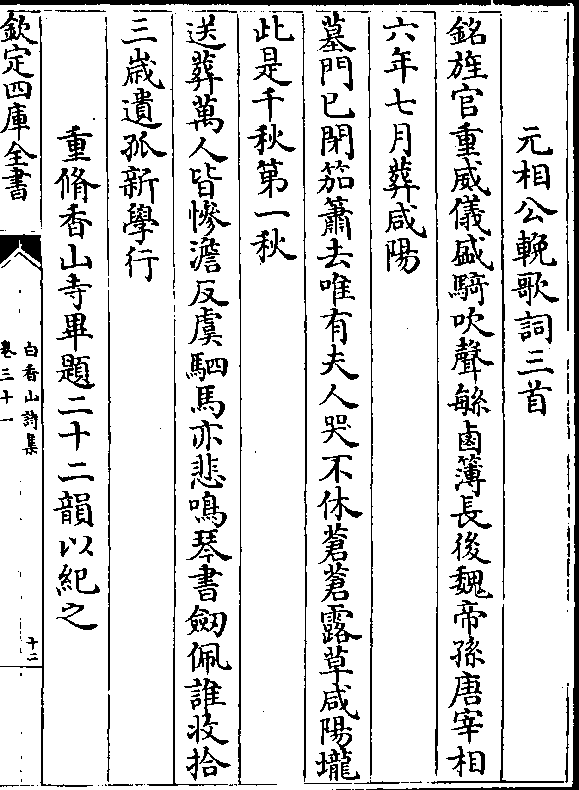 元相公輓歌詞三首
銘旌官重威儀盛騎吹聲繇鹵簿長後魏帝孫唐宰相
六年七月葬咸陽
墓門已閉笳簫去唯有夫人哭不休蒼蒼露草咸陽壠
此是千秋第一秋
送葬萬人皆慘澹反虞駟馬亦悲鳴琴書劔佩誰收拾
三歲遺孤新學行
重脩香山寺畢題二十二韻以紀之
欽定四庫全書
白香山詩集
卷三十一
十二